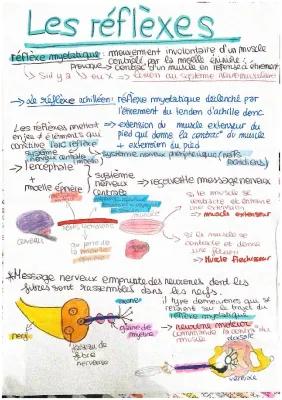 Les réflexes
réflexe myotatique : mouvement involontaire d'un muscle
contrôlé par la moelle épinière ;
provoque → contract° d'un muscle en réponse à étirement
→ Si il y a ou X → lésion au système neuromusculaire
→ le réflexe achilléen : réflexe myotatique déclenché par
l'étirement du tendon d'achille donc
→ extension du muscle extenseur du
pied qui donne la contract° du muscle
+ extension du pied
Les réflexes mettent
en jeu ≠ éléments qui
constitue l'arc réflexe
système
nerveux centrale
→ système nerveux périphérique (nerfs
→ l'encéphale
+
moelle épinière
système
nerveux
centrale
→ recueille message nerveux
si le muscle se
contracte et entraîne
une extension
→ muscle extenseur
cerveau
muscle
si le muscle se
contracte et donne
une flexion
→ Muscle fléchisseur
* Message nerveux emprunte des neurones dont les
fibres sont rassemblées dans les nerfs
il type de neurones qui se
rencontre sur le trajet du
réflexe myotatique
→ neurone moteur
commande la contra°
du muscle
axone
gaine de
myéline
nerf
faisceau de
fibre
nerveuse
dorsale
ventrale